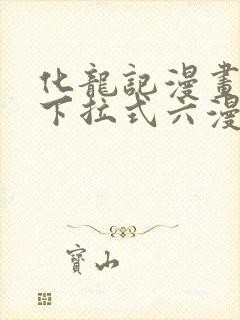 化龍記漫畫
下拉式六漫
寶山